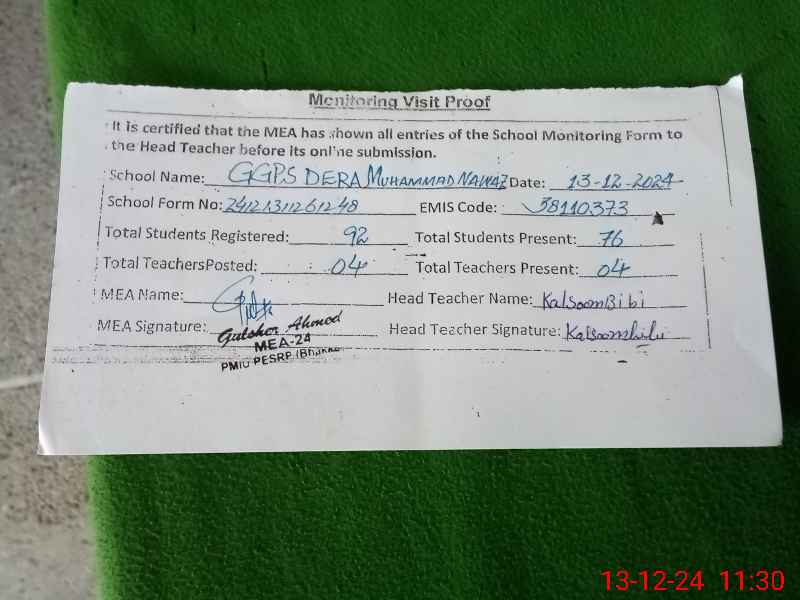 Monitoring Visit Proof
It is certified that the MEA has shown all entries of the School Monitoring Form to
the Head Teacher before its online submission.
School Name: GGPS DERA MUHAMMAD NAWAZ Date: 13-12-2024
School Form No: 24121311261248 EMIS Code: 38110373
Total Students Registered: 92 Total Students Present: 76
Total TeachersPosted: 04 Total Teachers Present: 04
MEA Name: Head Teacher Name: Kalsoom Bibi
MEA Signature: Gulsher Ahmed Head Teacher Signature: Kalsoombibi
MEA-24
PMIU PESRP (Bhakkar
13-12-24 11:30